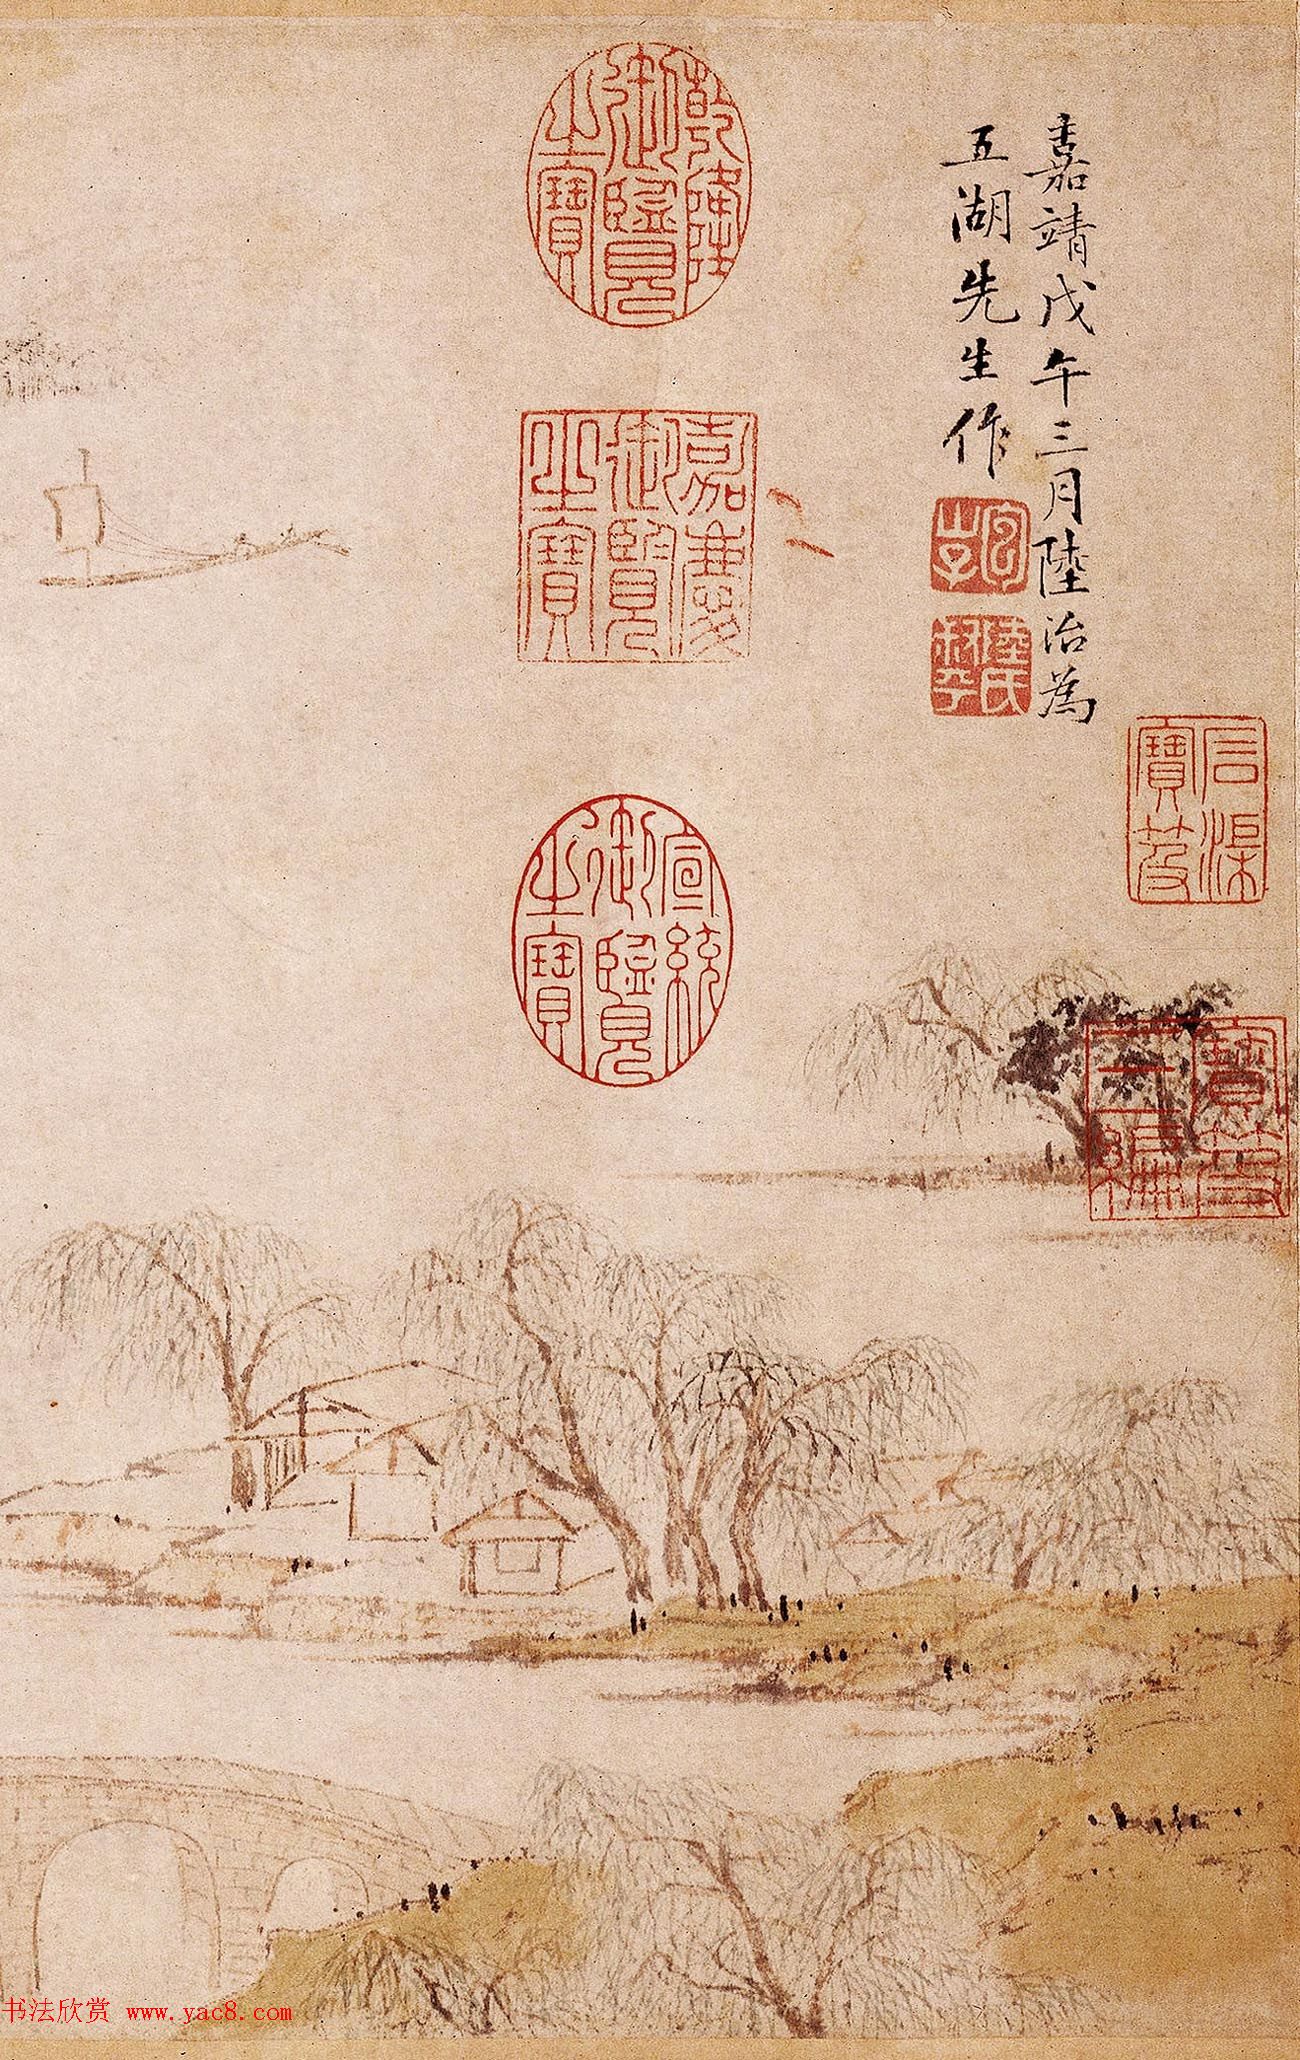 嘉靖戊午三月陸治為
五湖先生作
乾隆御覽之寶
嘉慶御覽之寶
宣統御覽之寶
包山子
陸氏叔平
石渠寶笈
寶笈三編
书法欣赏 www.yac8.com